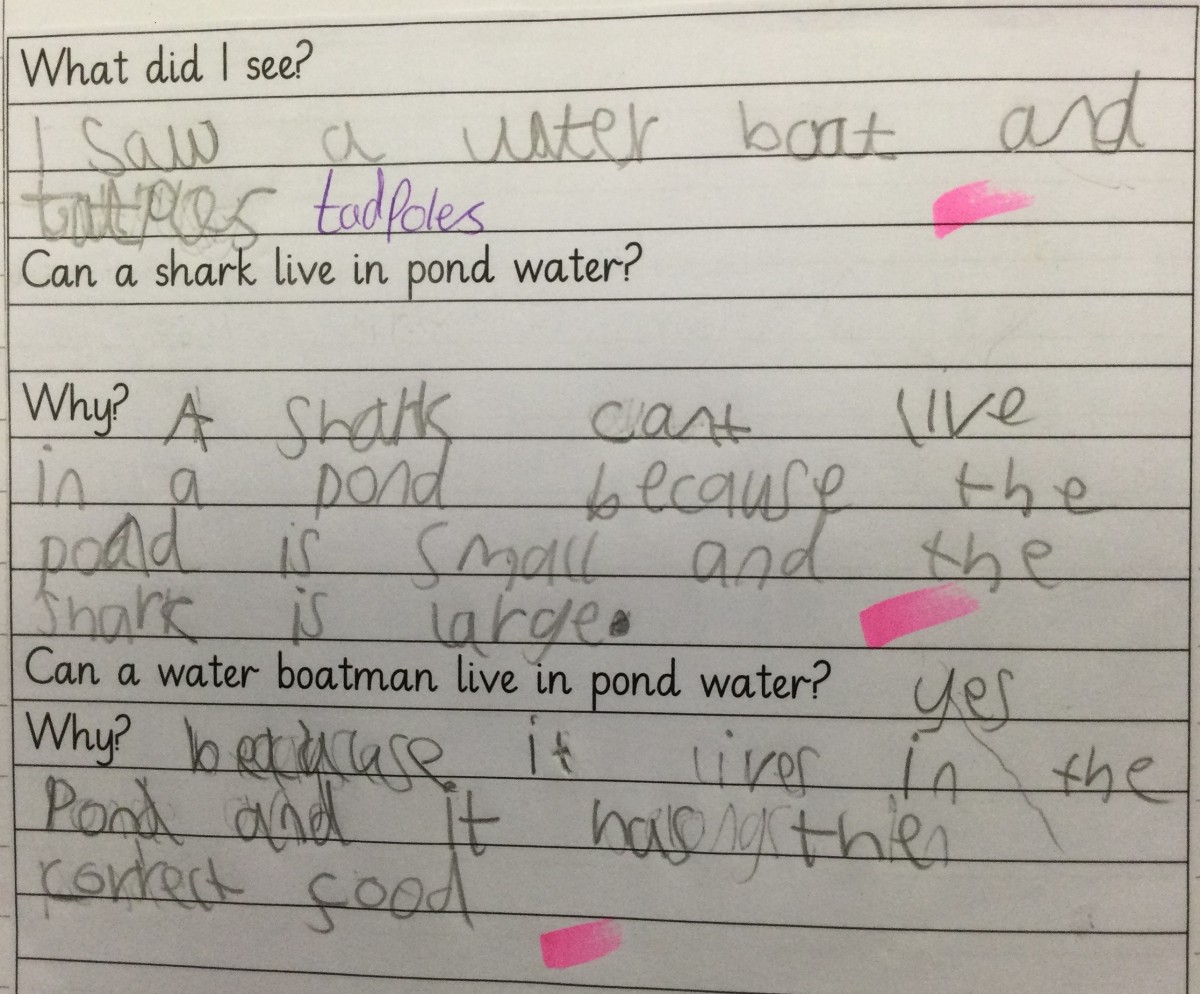 What did I see?
I saw a water boat and
tatPles tadPoles
Can a shark live in pond water?
Why? A shark cant live
in a pond because the
pond is small and the
shark is large.
Can a water boatman live in pond water? yes
Why? because it lives in the
Pond and it has the
correct food